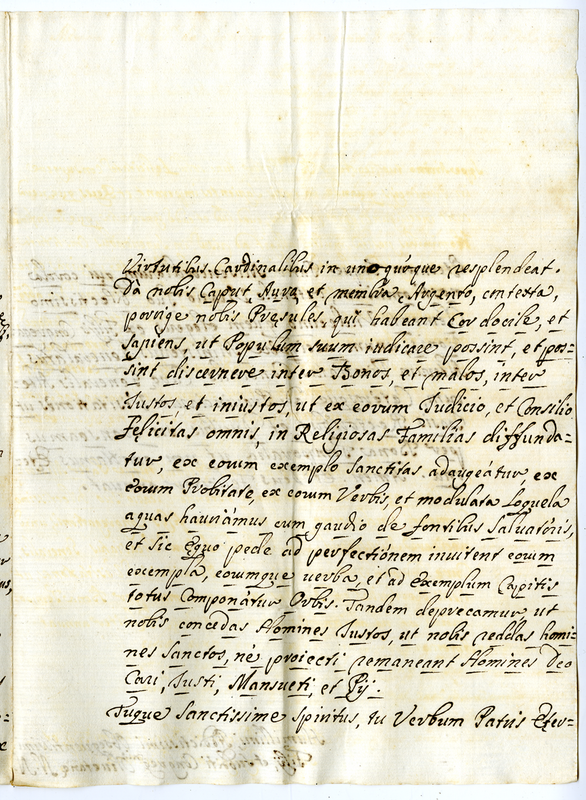 Virtutibus Cardinalibus in uno quóque resplendeat.
Dà nobis Caput, Aura et membra Argento, contexta,
porrige nobis Pręsules, qui habeant Cor docile, et
sapiens, ut Populum suum iudicare possint, et pos-
sint discernere inter Bonos, et malos, inter
Iustos, et iniustos, ut ex eorum Iudicio, et Consilio
Fęlicitas omnis, in Religiosas Familias diffunda-
tur, ex eorum exemplo Sanctitas adaugeatur, ex
eorum Probitate, ex eorum Verbis, et modulata Loquela
aquas hauriámus cum gaudio de fontibus Saluatóris,
et sic Equo pede ad perfectiónem inuitent eorum
exempla, eorumque uerba, et ad Exemplum Capitis
totus Componátur Orbis. Tandem deprecamur ut
nobis concedas Homines Iustos, ut nobis reddas homi-
nes Sanctos, né proiecti remaneant Homines Deo
Cari, Iusti, Mansueti, et Pij.
Tuque Sanctissime Spiritus, tu Verbum Patris Ęter-